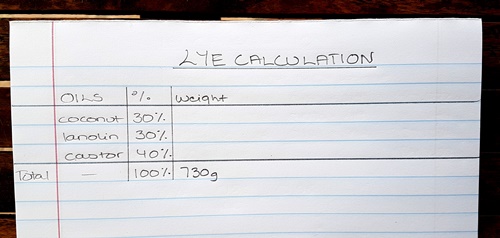 LYE CALCULATION
OILS % Weight
coconut 30%
lanolin 30%
castor 40%
Total — 100% 730g